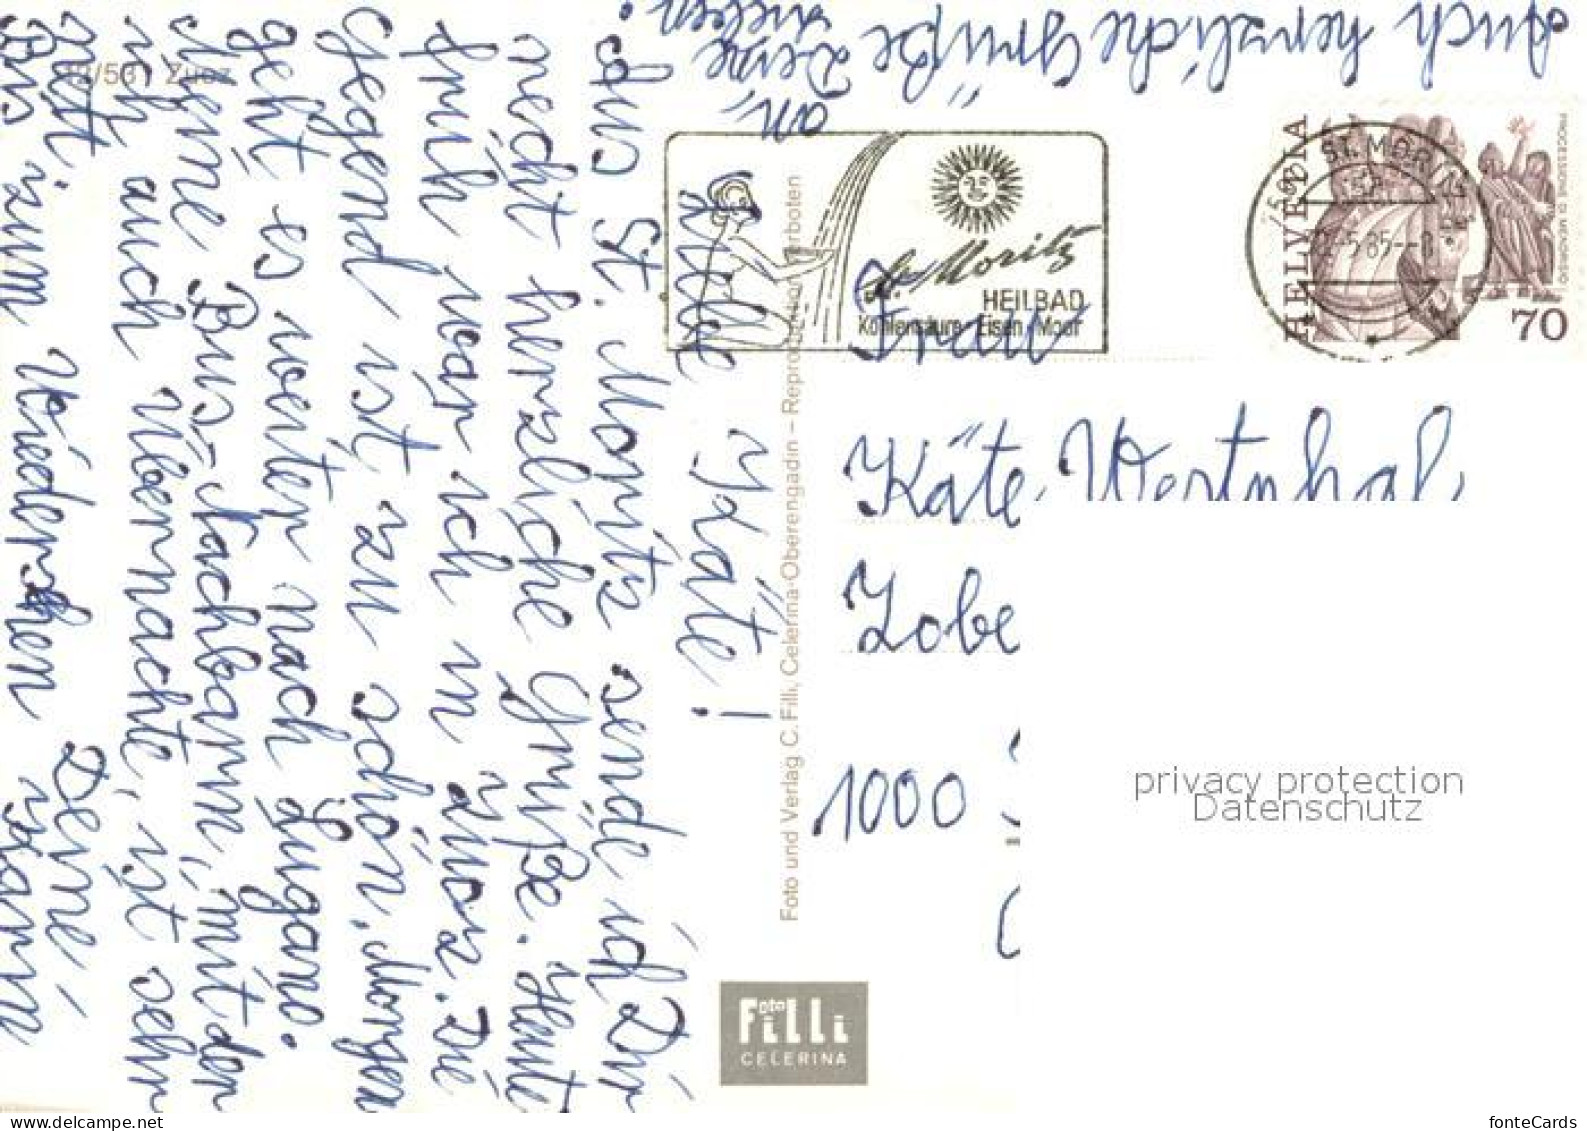 Liebe Käte!
Aus St. Moritz sende ich Dir
recht herzliche Grüße. Heute
früh war ich in Zuoz. Die
Gegend ist zu schön. Morgen
geht es weiter nach Lugano.
Meine Bus-Nachbarin, mit der
ich auch übernachte, ist sehr
nett. Deine
Bis zum Wiedersehen
Auch herzliche Grüße
an Deine
Lieben.
Zuoz
Foto und Verlag C. Filli, Celerina-Oberengadin – Reproduktion verboten
Foto
Filli
CELERINA
St. Moritz
HEILBAD
Kohlensäure Eisen Moor
ST. MORITZ
5.85
HELVETIA
PROCESSIONE DI MENDRISIO
70
Frau
Käte
1000
privacy protection
Datenschutz
fonteCards